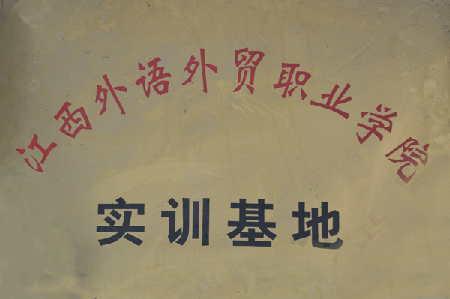 江西外语外贸职业学院
实训基地